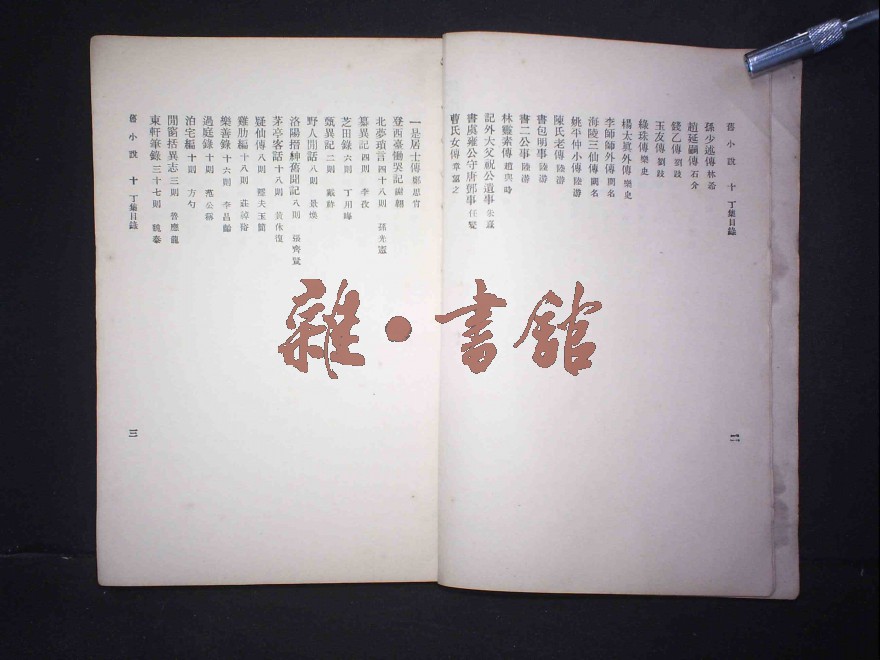 舊小說 十 丁集目錄
孫少述傳 林希
趙延嗣傳 石介
錢乙傳 劉跂
玉友傳 劉跂
綠珠傳 樂史
楊太眞外傳 樂史
李師師外傳 闕名
海陵三仙傳 闕名
姚平仲小傳 陸游
陳氏老傳 陸游
書包明事 陸游
書二公事 陸游
林靈素傳 趙與時
記外大父祝公遺事 朱熹
書虞雍公守唐鄧事 任燮
曹氏女傳 章望之
二
一是居士傳 鄭思肖
登西臺慟哭記 謝翶
北夢瑣言 四十八則 孫光憲
纂異記 四則 李玫
芝田錄 六則 丁用晦
甄異記 二則 戴祚
野人閒話 八則 景煥
洛陽搢紳舊聞記 八則 張齊賢
茅亭客話 十八則 黃休復
疑仙傳 八則 隱夫玉簡
雞肋編 十八則 莊綽裕
樂善錄 十六則 李昌齡
過庭錄 十則 范公稱
泊宅編 十則 方勺
閒窗括異志 三則 魯應龍
東軒筆錄 三十七則 魏泰
舊小說 十 丁集目錄
三
雜·書館